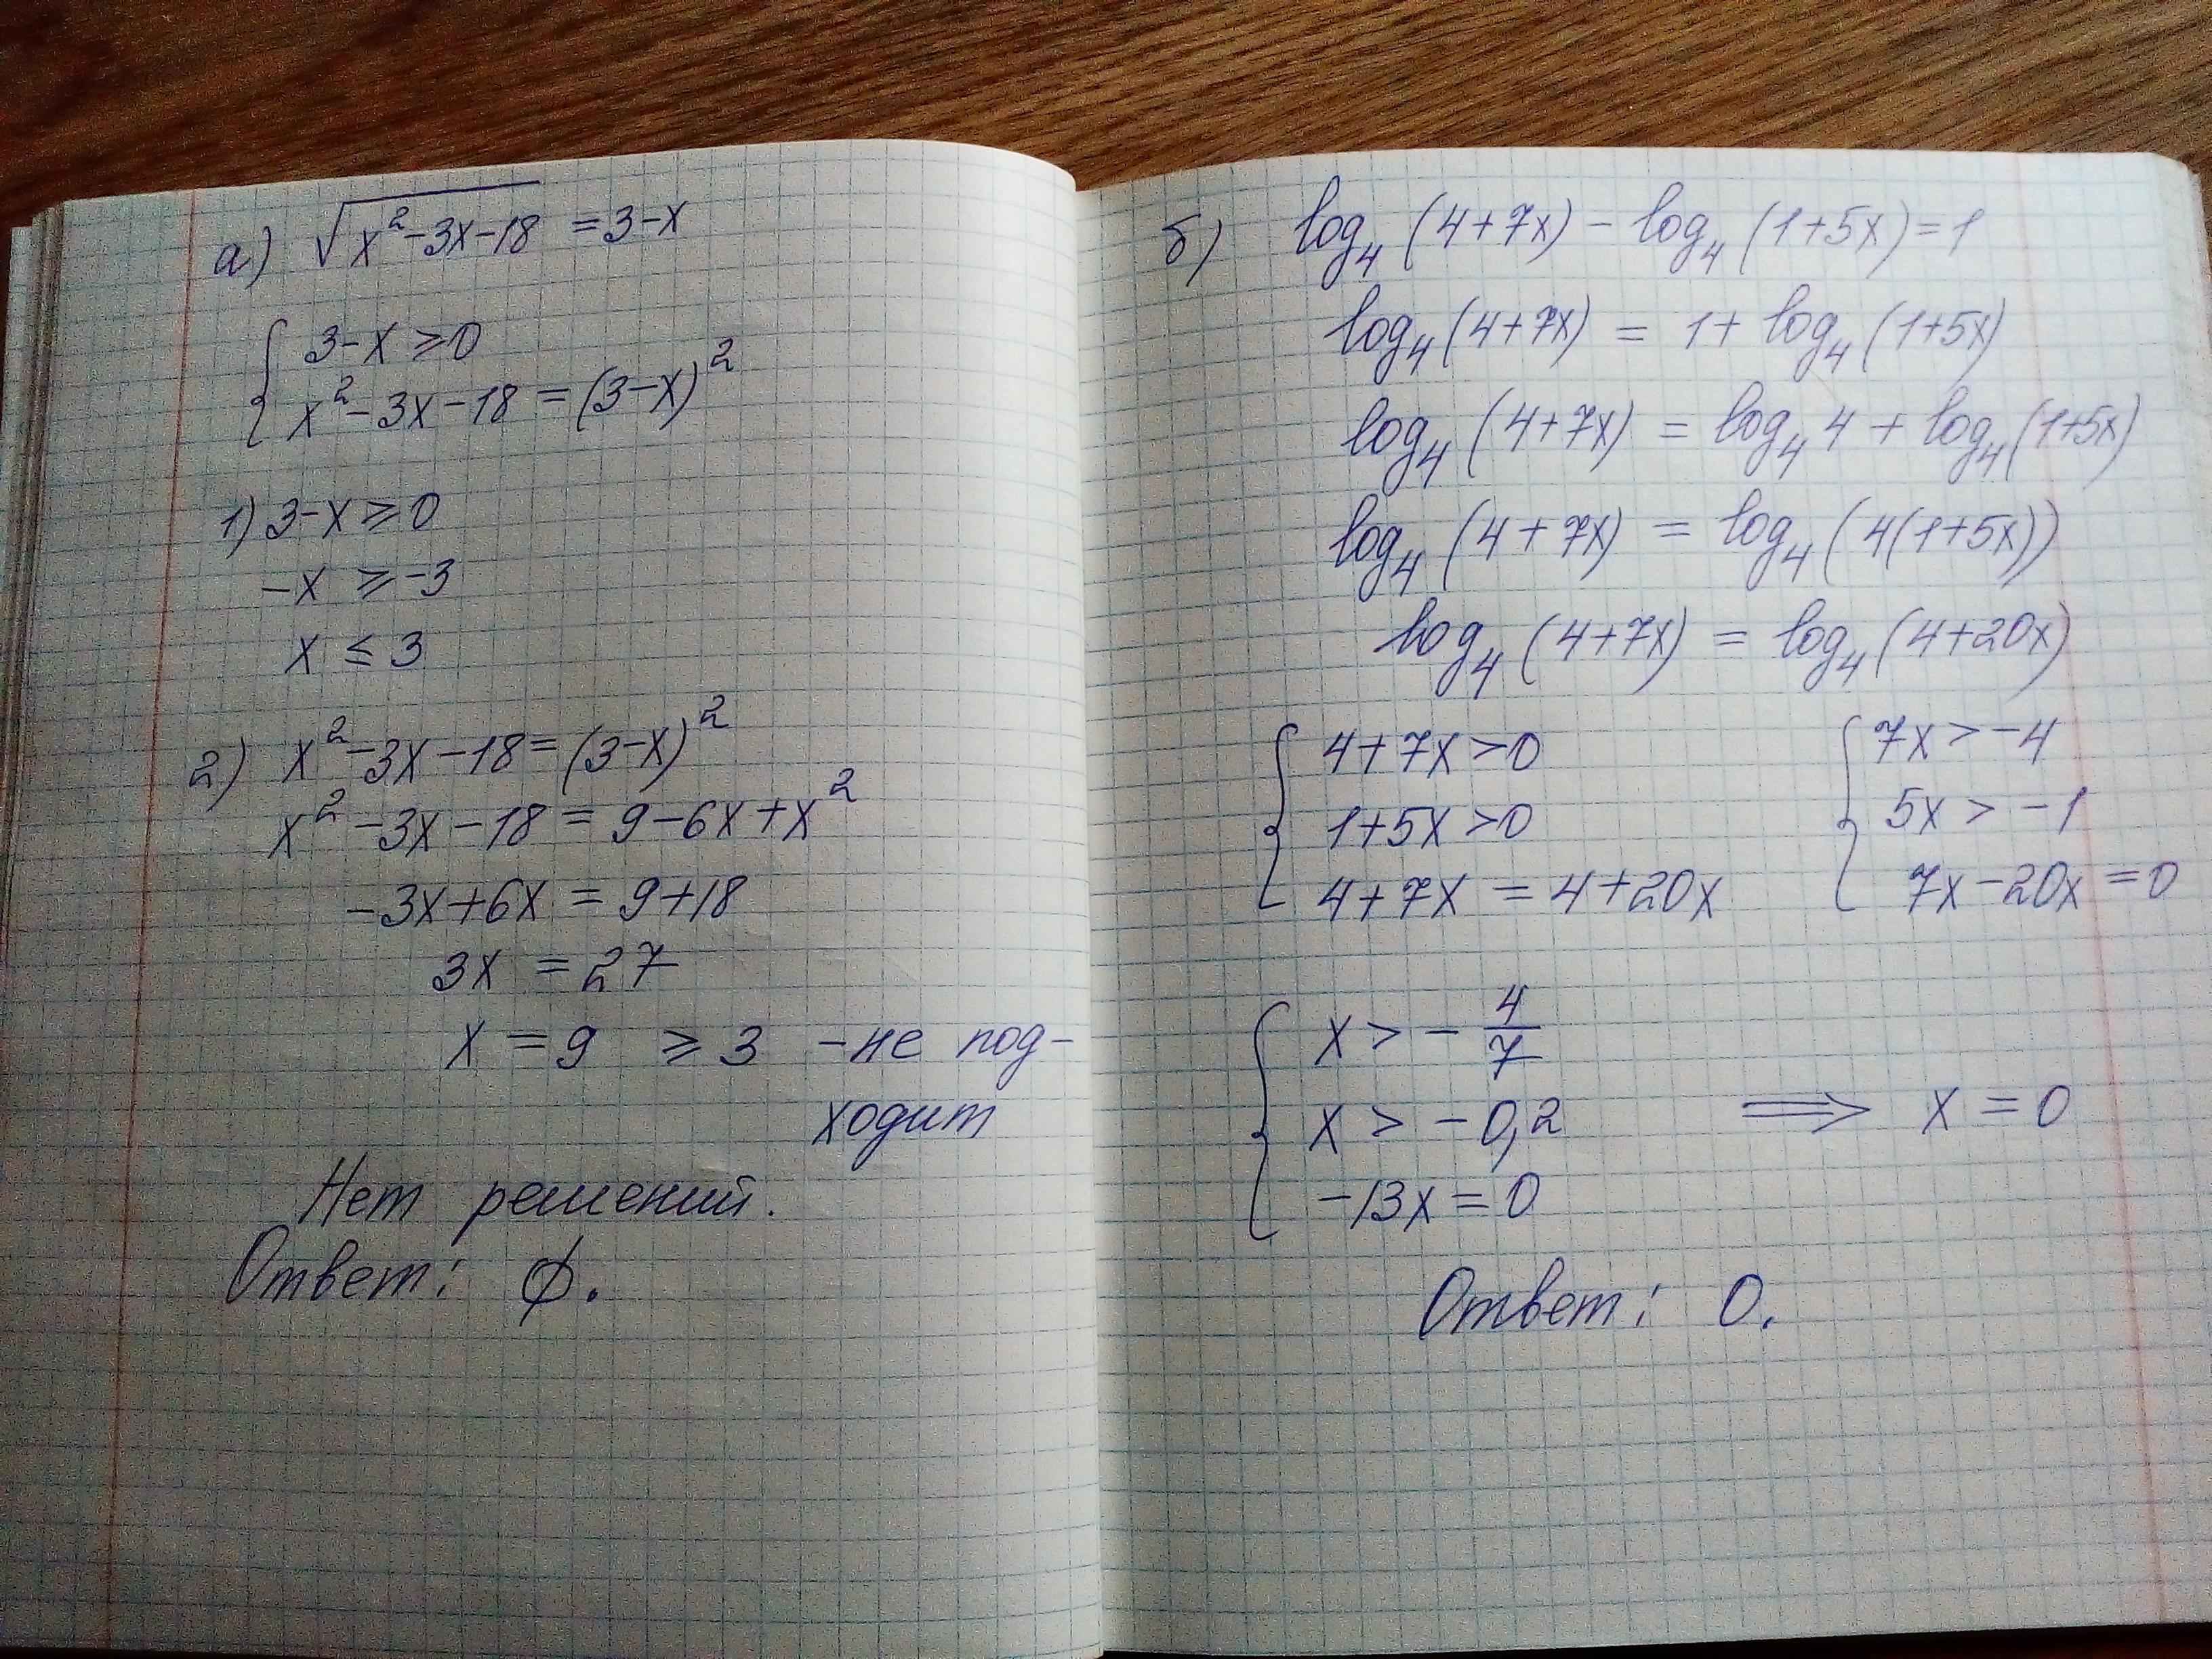 а) √(x²-3x-18) = 3-x
{ 3-x ≥ 0
x²-3x-18 = (3-x)²
1) 3-x ≥ 0
-x ≥ -3
x ≤ 3
2) x²-3x-18 = (3-x)²
x²-3x-18 = 9-6x+x²
-3x+6x = 9+18
3x = 27
x = 9 ≥ 3 - не под-
ходит
Нет решений.
Ответ: ∅.
б) log₄(4+7x) - log₄(1+5x) = 1
log₄(4+7x) = 1 + log₄(1+5x)
log₄(4+7x) = log₄4 + log₄(1+5x)
log₄(4+7x) = log₄(4(1+5x))
log₄(4+7x) = log₄(4+20x)
{ 4+7x > 0
1+5x > 0
4+7x = 4+20x
{ 7x > -4
5x > -1
7x-20x = 0
{ x > -4/7
x > -0,2 ⟹ x = 0
-13x = 0
Ответ: 0.